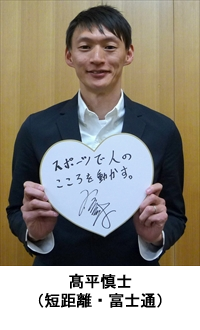 スポーツで人の
こころを動かす。
高平慎士
（短距離・富士通）